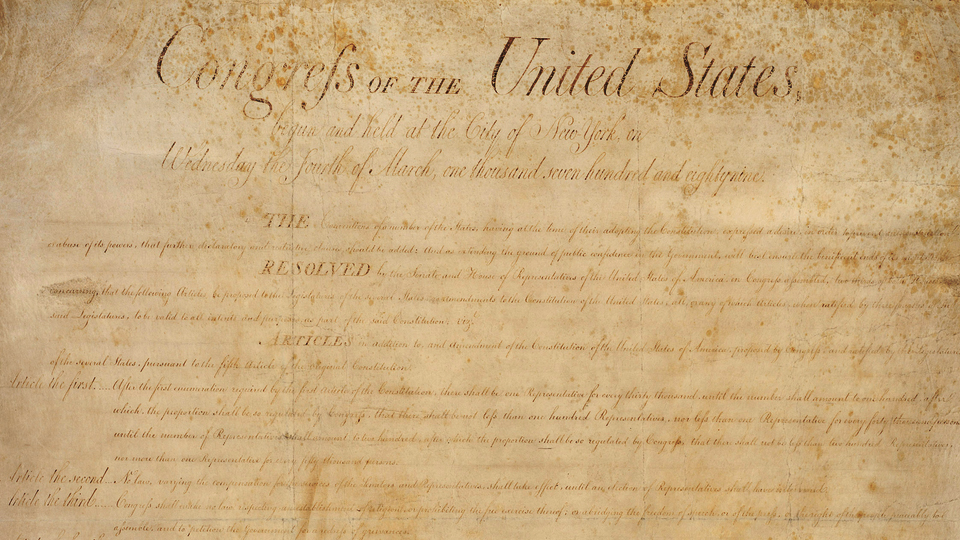 Congreſs OF THE United States,
begun and held at the City of New York, on
Wednesday the fourth of March, one thousand seven hundred and eighty nine.
THE Conventions of a number of the States, having at the time of their adopting the Constitution, expressed a desire, in order to prevent
or abuse of its powers, that further declaratory and restrictive clauses should be added: And as extending the ground of public confidence in the Government, will best insure the beneficent ends
RESOLVED by the Senate and House of Representatives of the United States of America, in Congress assembled, two thirds of both Houses
concurring, that the following Articles be proposed to the Legislatures of the several States, as amendments to the Constitution of the United States, all, or any of which Articles, when ratified by three fourths of
said Legislatures, to be valid to all intents and purposes, as part of the said Constitution; viz.
ARTICLES in addition to, and Amendment of the Constitution of the United States of America, proposed by Congress, and ratified by the Legislatures
of the several States, pursuant to the fifth Article of the original Constitution.
Article the first.... After the first enumeration required by the first Article of the Constitution, there shall be one Representative for every thirty thousand, until the number shall amount to one hundred, after
which, the proportion shall be so regulated by Congress, that there shall be not less than one hundred Representatives, nor less than one Representative for every forty thousand persons,
until the number of Representatives shall amount to two hundred, after which the proportion shall be so regulated by Congress, that there shall not be less than two hundred Representatives,
nor more than one Representative for every fifty thousand persons.
Article the second... No law, varying the compensation for the services of the Senators and Representatives, shall take effect, until an election of Representatives shall have intervened.
Article the third..... Congress shall make no law respecting an establishment of religion, or prohibiting the free exercise thereof; or abridging the freedom of speech, or of the press; or the right of the people peaceably to
assemble, and to petition the Government for a redress of grievances.